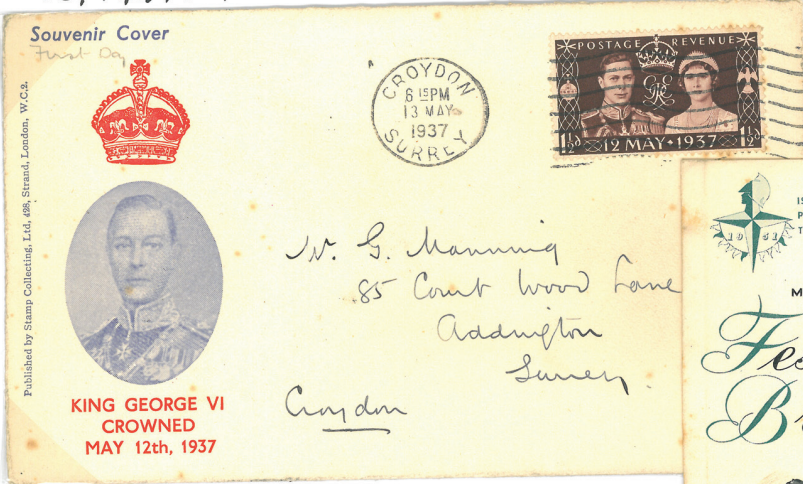 Souvenir Cover
First Day
Published by Stamp Collecting, Ltd, 428, Strand, London, W.C.2.
KING GEORGE VI
CROWNED
MAY 12th, 1937
CROYDON
6 15 PM
13 MAY
1937
SURREY
POSTAGE REVENUE
1½ 12 MAY · 1937 1½
W. G. Manning
85 Court Wood Lane
Addington
Surrey.
Croydon
IS
P
T
1951
M
Fes
Br